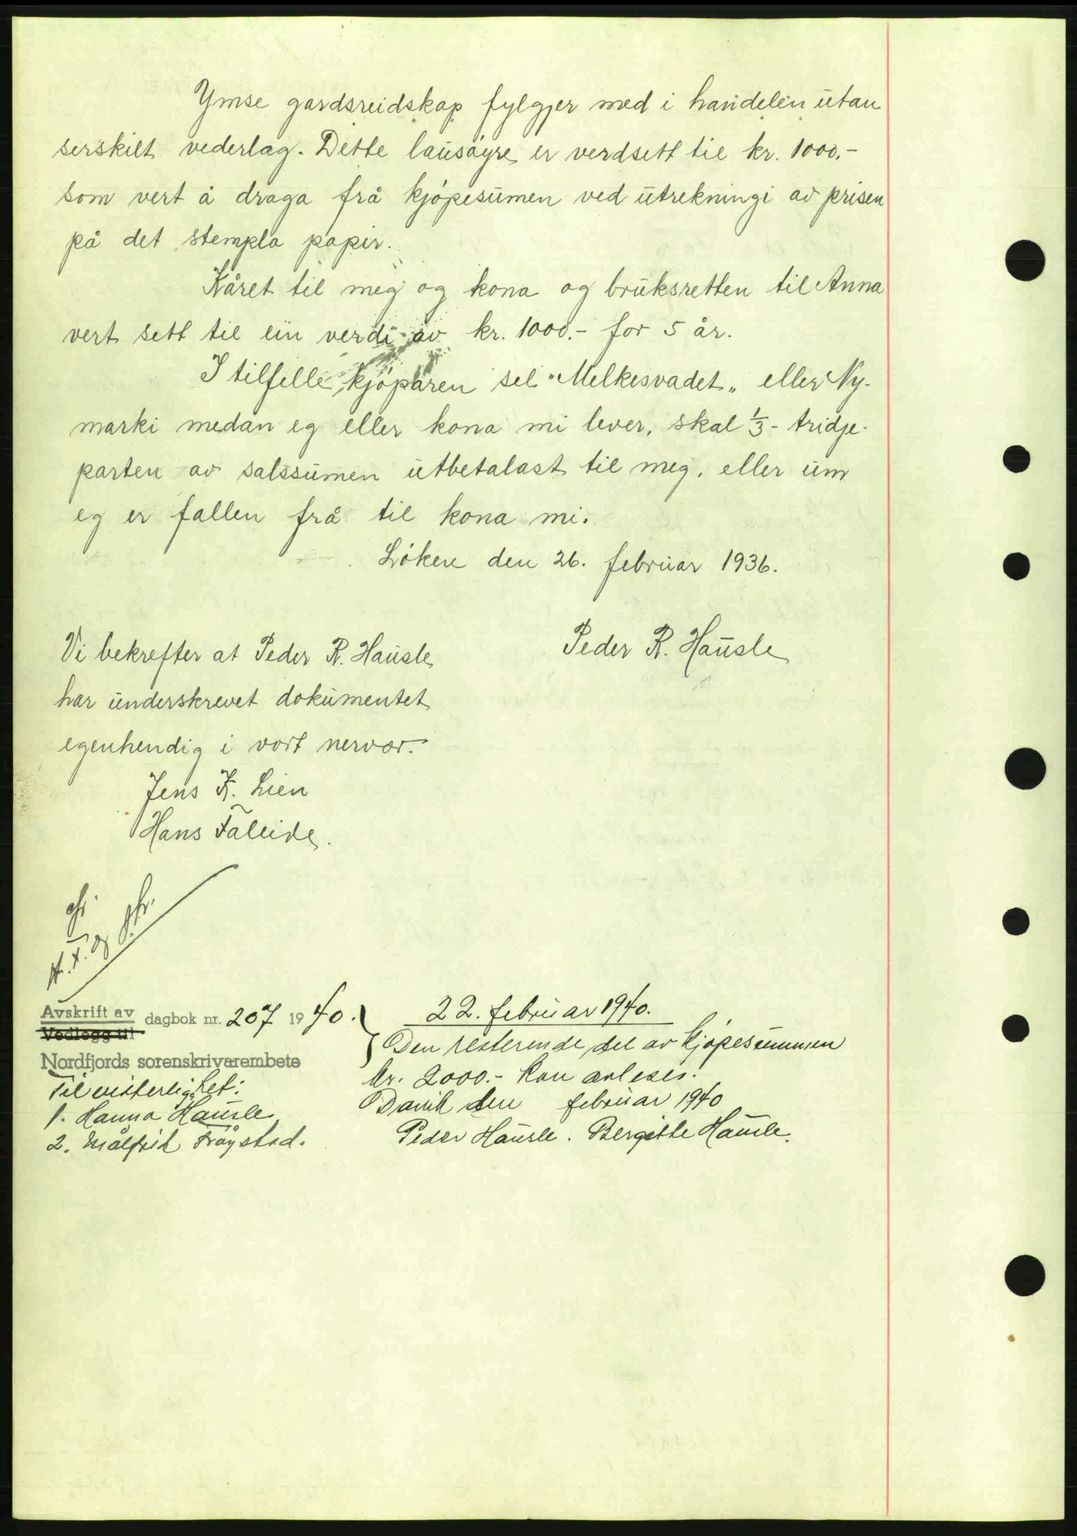 Ymse gardsreidskap fylgjer med i handelen utan
serskilt vederlag. Dette lausøyre er verdsett til kr. 1000.-
som vert å draga frå kjøpesumen ved utrekningi av prisen
på det stempla papir.
Kåret til meg og kona og bruksretten til Anna
vert sett til ein verdi av kr. 1000.- for 5 år.
I tilfelle kjøparen sel "Melkesvadet" eller Ny-
marki medan eg eller kona mi lever, skal 1/3 - tridje-
parten av salssumen utbetalast til meg, eller um
eg er fallen frå til kona mi.
Løken den 26. februar 1936.
Peder R. Hausle
Vi bekrefter at Peder R. Hausle
har underskrevet dokumentet
egenhendig i vort nervær.
Jens K. Lien
Hans Faleide.
Avskrift av
Vedlegg til
dagbok nr. 207 1940.
Nordfjords sorenskrivarembete
Til vitterlighet:
1. Hanna Hausle
2. Målfrid Frøystad.
22. februar 1940.
Den resterende del av kjøpesummen
kr. 2000.- kan avleses.
Davik den februar 1940
Peder Hausle. Bergitte Hausle.